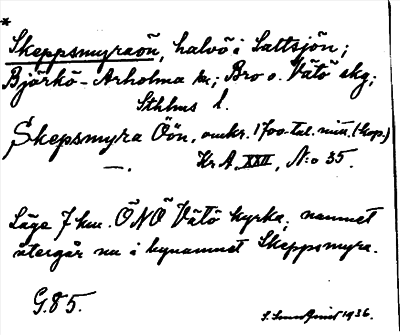 *
Skeppsmyraön, halvö i Saltsjön;
Björkö-Arholma kn; Bro o. Vätö skg;
Sthlms l.
Skepsmyra Öön, omkr. 1700-tal. min. (kop.)
—. Kr. A. XXII, N:o 35.
Läge 7 km. ÖNÖ Vätö kyrka; namnet
återgår nu i bynamnet Skeppsmyra.
G. 85.
1936.